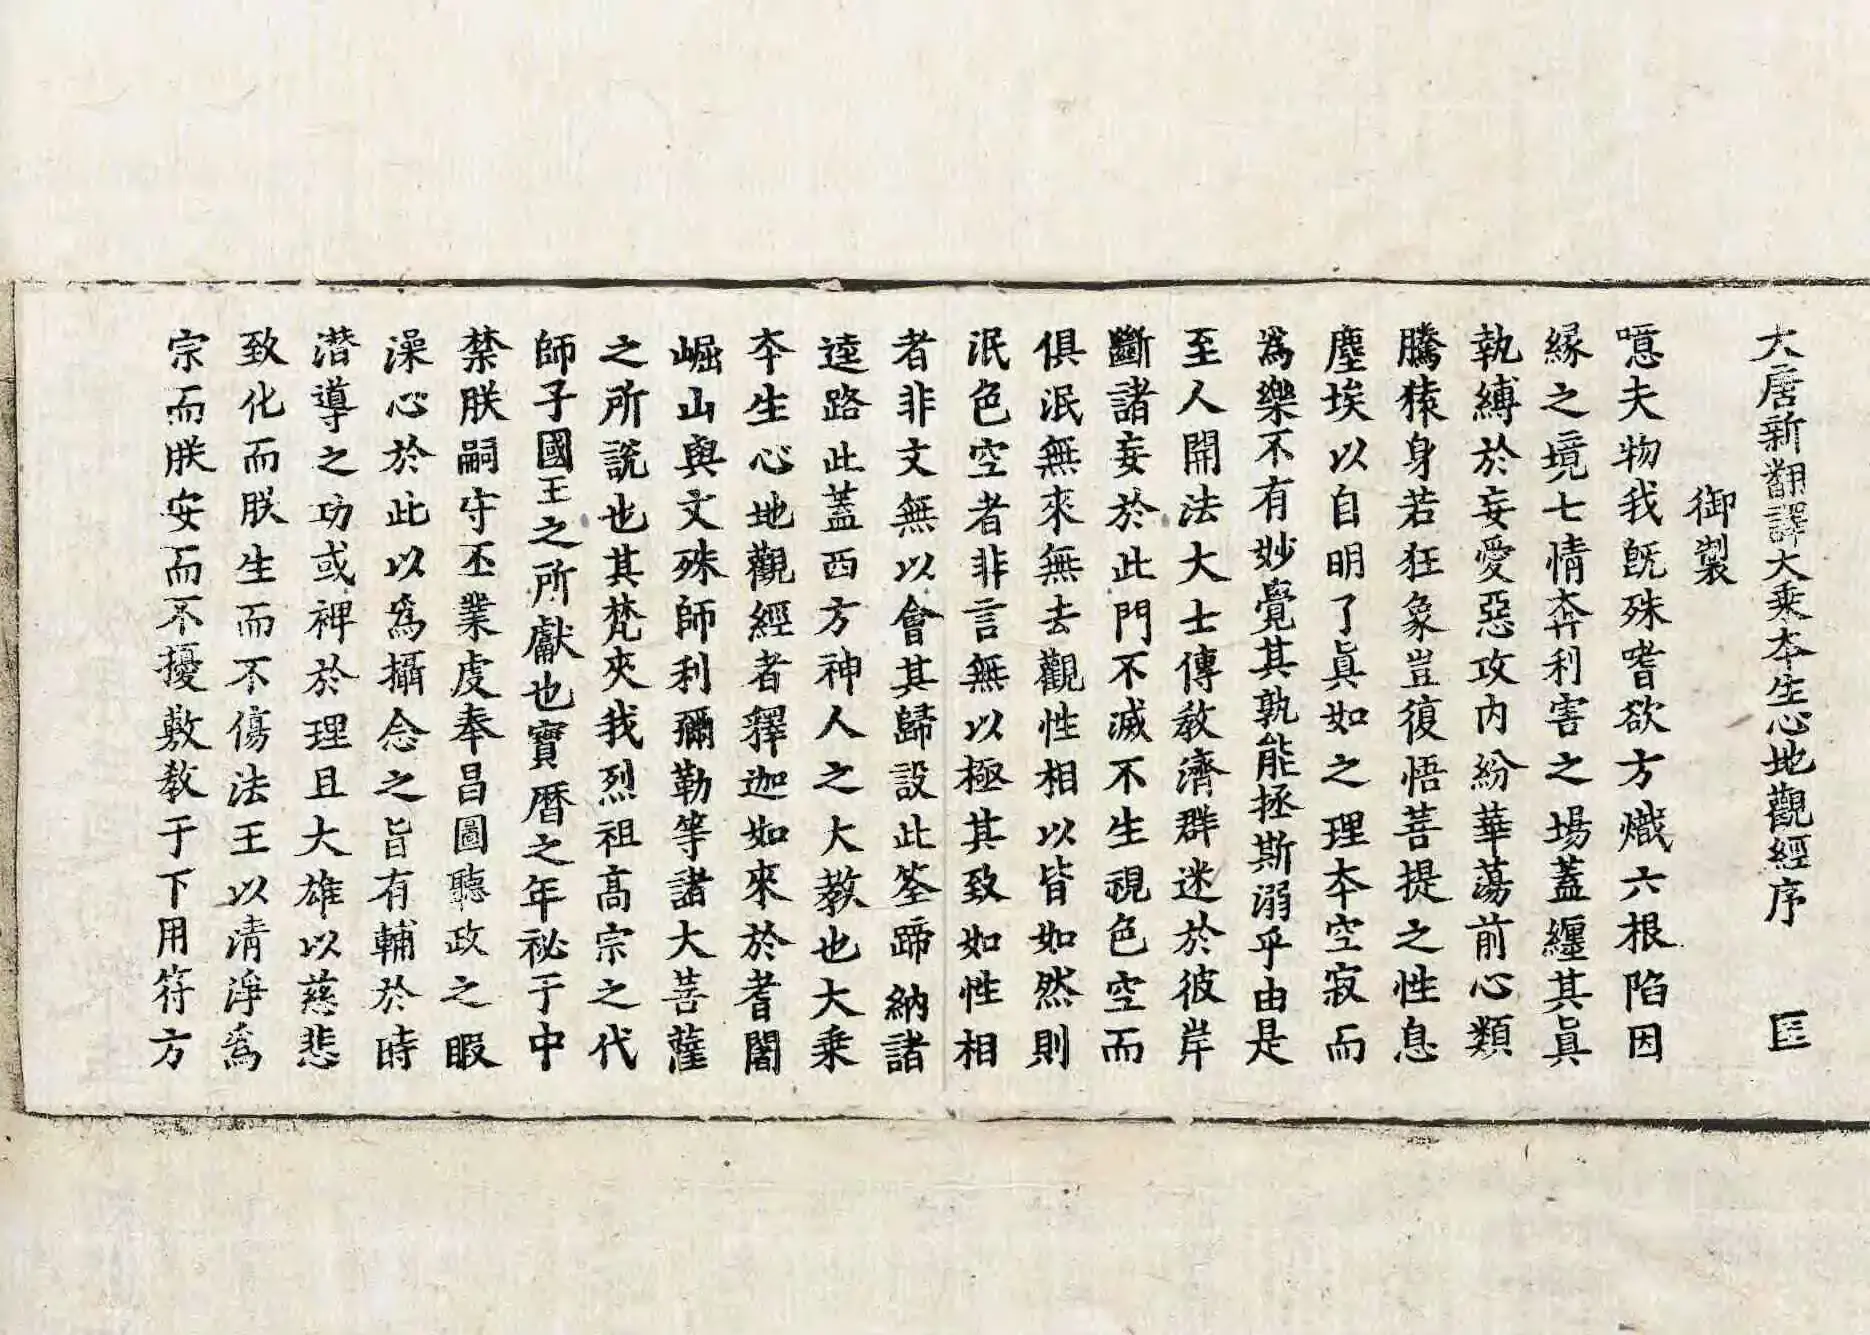 大唐新翻譯大乘本生心地觀經序 匡
御製
噫夫物我旣殊嗜欲方熾六根陷因
縁之境七情奔利害之場蓋纏其眞
執縛於妄愛惡攻内紛華蕩前心類
騰猿身若狂象豈復悟菩提之性息
塵埃以自明了眞如之理本空寂而
爲樂不有妙覺其孰能拯斯溺乎由是
至人開法大士傳教濟群迷於彼岸
斷諸妄於此門不滅不生視色空而
俱泯無來無去觀性相以皆如然則
泯色空者非言無以極其致如性相
者非文無以會其歸設此筌蹄納諸
逵路此蓋西方神人之大教也大乘
本生心地觀經者釋迦如來於耆闍
崛山與文殊師利彌勒等諸大菩薩
之所說也其梵夾我烈祖高宗之代
師子國王之所獻也寶曆之年祕于中
禁朕嗣守丕業虔奉昌圖聽政之暇
澡心於此以爲攝念之旨有輔於時
潛導之功或裨於理且大雄以慈悲
致化而朕生而不傷法王以清淨爲
宗而朕安而不擾敷教于下用符方